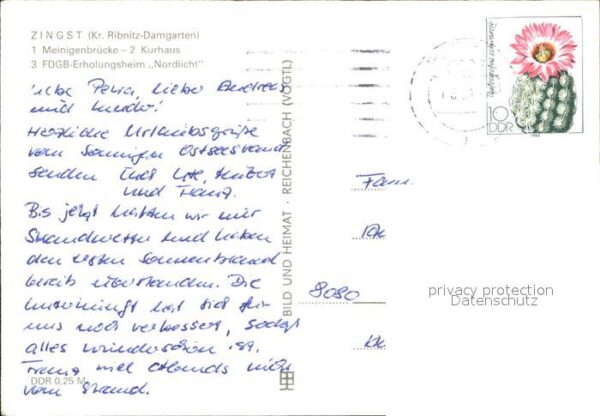 ZINGST (Kr. Ribnitz-Damgarten)
1 Meinigenbrücke – 2 Kurhaus
3 FDGB-Erholungsheim „Nordlicht"
Liebe Petra, lieber Andreas
und
Herzliche Urlaubsgrüße
vom Sonnigen Ostseestrand
senden Euch Ute, Hubert
und Franz.
Bis jetzt hatten wir nur
Strandwetter und haben
den ersten Sonnenbrand
bereits überstanden. Die
hat sich für
uns noch verbessert, sodaß
alles wunderschön ist.
Franz will Abends nicht
vom Strand.
DDR 0,25 M
BILD UND HEIMAT · REICHENBACH (VOGTL)
Fam.
8080
10
DDR
privacy protection
Datenschutz